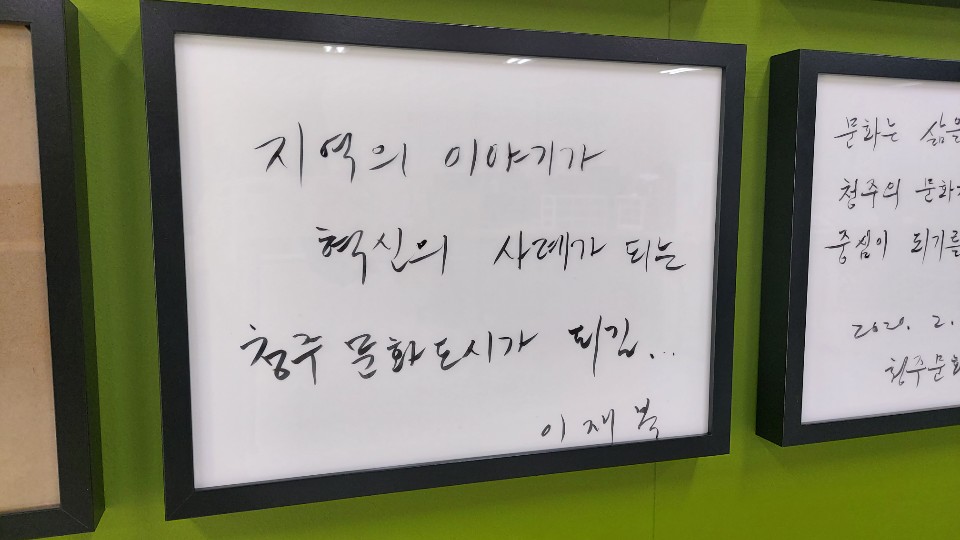 지역의 이야기가
혁신의 사례가 되는
청주 문화도시가 되길...
이재복
문화는 삶을
청주의 문화
중심이 되기를
2020. 2.
청주문화